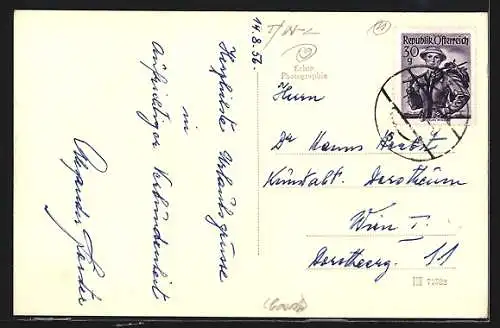 14.8.56.
Herzlichste Urlaubsgrüsse
in
Aufrichtiger Verbundenheit
Alexander
Echte
Photographie
Republik Österreich
30
g
Herrn
Dr Hanns Herbst
Kunstabt. Dorotheum
Wien I.
Dorotheerg. 11
III